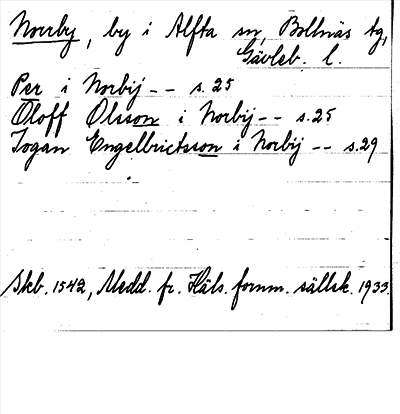 Norrby, by i Alfta sn, Bollnäs tg,
Gävleb. l.
Per i Norbij -- s. 25
Oloff Olsson i Norbij -- s. 25
Jogan Engelbrictsson i Norbij -- s. 29
Skb. 1542, Medd. fr. Häls. fornm. sällsk. 1933.